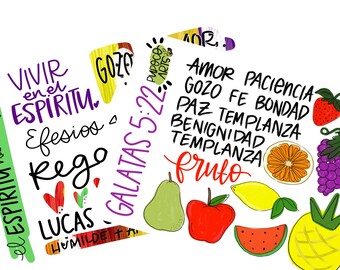 VIVIR
en el
ESPÍRITU.
Efesios
Rego
LUCAS
HUMILDE +
el ESPÍRITU
GOZO
AMOR
GALATAS 5:22
AMOR PACIENCIA
GOZO FE BONDAD
PAZ TEMPLANZA
BENIGNIDAD
TEMPLANZA
fruto